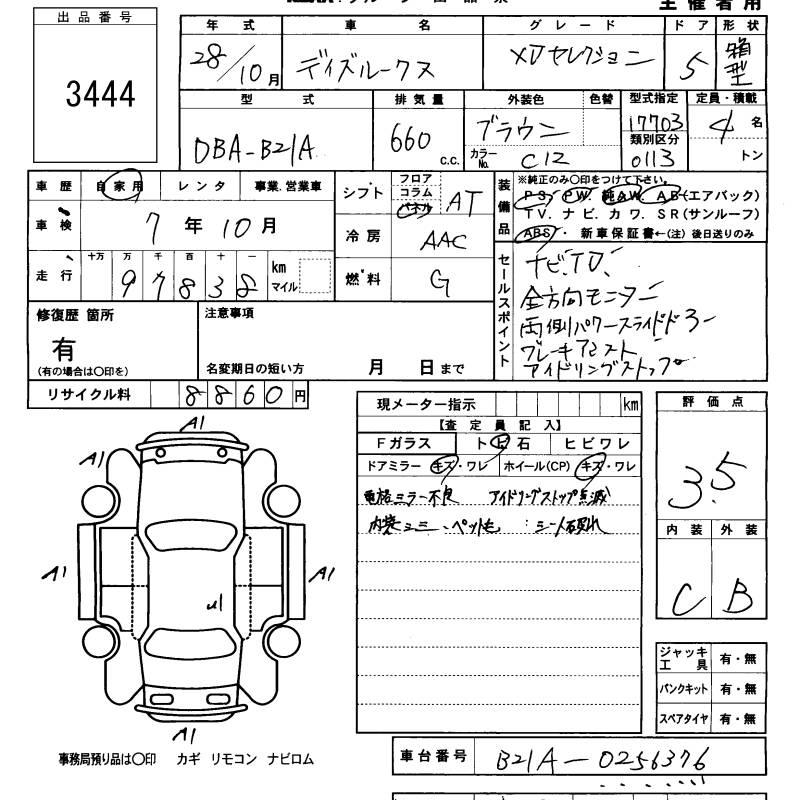 出品番号
3444
年式 車名 グレード ドア 形状
28/10月 ディズルークス XDセレクション 5 箱型
型式 排気量 外装色 色替 型式指定 定員・積載
DBA-B21A 660 c.c. ブラウン 17703 4名
カラーNo. C12 類別区分 0113 トン
車歴 自家用 レンタ 事業、営業車
車検 7年10月
走行 十万 万 千 百 十 一 km マイル
97838
シフト フロア コラム パネル AT
冷房 AAC
燃料 G
装備品
※純正のみ〇印をつけて下さい。
PS. PW. 純AW. AB(エアバック)
TV. ナビ. カワ. SR(サンルーフ)
ABS. 新車保証書←(注) 後日送りのみ
セールスポイント
ナビ.TV.
全方向モニター
両側パワースライドドアー
ブレーキアシスト
アイドリングストップ
修復歴 箇所
有
(有の場合は〇印を)
注意事項
名変期日の短い方 月 日まで
リサイクル料 8860円
現メーター指示 km
【査定員記入】
Fガラス トビ石 ヒビワレ
ドアミラー キズ・ワレ ホイール(CP) キズ・ワレ
電格ミラー不良 アイドリングストップ点滅
内装シミ、ペット毛
評価点
3.5
内装 外装
C B
A1
A1
A1
A1
A1
ジャッキ工具 有・無
パンクキット 有・無
スペアタイヤ 有・無
事務局預り品は〇印 カギ リモコン ナビロム
車台番号 B21A-0256376